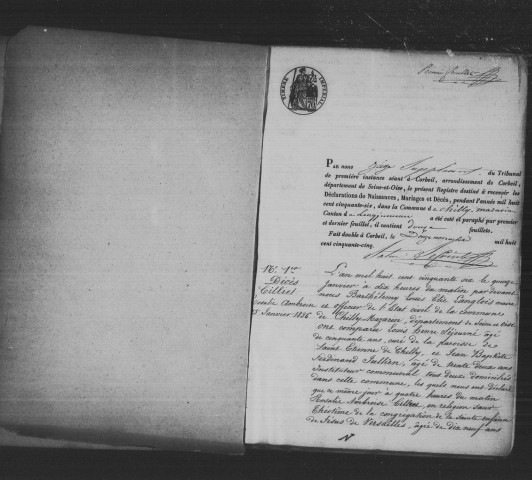 TIMBRE IMPERIAL
PAR nous Juge Suppléant, du Tribunal
de première instance séant à Corbeil, arrondissement de Corbeil,
département de Seine-et-Oise, le présent Registre destiné à recevoir les
Déclarations de Naissances, Mariages et Décès, pendant l'année mil huit
cent cinquante-six, dans la Commune de Chilly Mazarin
Canton de Longjumeau a été coté et paraphé par premier
et dernier feuillet, il contient douze feuillets.
Fait double à Corbeil, le Douze novembre mil huit
cent cinquante-cinq.
N°. 1er
Décès
Gillet
Rosalie Ambrose
15 Janvier 1856
L'an mil huit cent cinquante six le quinze
Janvier à dix heures du matin par devant
nous Barthélemy Louis Langlois maire
et officier de l'Etat civil de la commune
de Chilly-Mazarin, département de Seine et Oise
ont comparu Louis Henri Séjourné âgé
de cinquante ans, curé de la paroisse de
Saint Etienne de Chilly, et Jean Baptiste
Ferdinand Jullien, âgé de trente deux ans
Instituteur communal tous deux domiciliés
dans cette commune, les quels nous ont déclaré
que ce même jour à quatre heures du matin
Rosalie Ambrose Gillet, en religion sœur
Christine de la congrégation de la Sainte enfance
de Jésus de Versailles, âgée de dix neuf ans